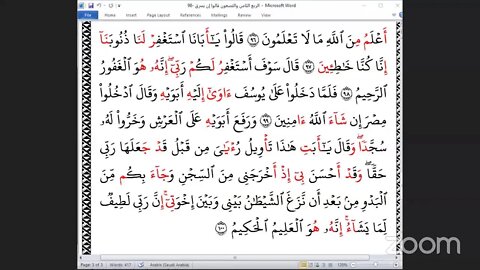 الربع الثامن والتسعون قالوا إن يسرق -90 - Microsoft Word
File Home Insert Page Layout References Mailings Review View
أَعْلَمُ مِنَ ٱللَّهِ مَا لَا تَعْلَمُونَ ٩٦ قَالُوا۟ يَٰٓأَبَانَا ٱسْتَغْفِرْ لَنَا ذُنُوبَنَآ
إِنَّا كُنَّا خَٰطِـِٔينَ ٩٧ قَالَ سَوْفَ أَسْتَغْفِرُ لَكُمْ رَبِّىٓ إِنَّهُۥ هُوَ ٱلْغَفُورُ
ٱلرَّحِيمُ ٩٨ فَلَمَّا دَخَلُوا۟ عَلَىٰ يُوسُفَ ءَاوَىٰٓ إِلَيْهِ أَبَوَيْهِ وَقَالَ ٱدْخُلُوا۟
مِصْرَ إِن شَآءَ ٱللَّهُ ءَامِنِينَ ٩٩ وَرَفَعَ أَبَوَيْهِ عَلَى ٱلْعَرْشِ وَخَرُّوا۟ لَهُۥ
سُجَّدًا ۖ وَقَالَ يَٰٓأَبَتِ هَٰذَا تَأْوِيلُ رُءْيَٰىَ مِن قَبْلُ قَدْ جَعَلَهَا رَبِّى
حَقًّا ۖ وَقَدْ أَحْسَنَ بِىٓ إِذْ أَخْرَجَنِى مِنَ ٱلسِّجْنِ وَجَآءَ بِكُم مِّنَ
ٱلْبَدْوِ مِنۢ بَعْدِ أَن نَّزَغَ ٱلشَّيْطَٰنُ بَيْنِى وَبَيْنَ إِخْوَتِىٓ ۚ إِنَّ رَبِّى لَطِيفٌ
لِّمَا يَشَآءُ ۚ إِنَّهُۥ هُوَ ٱلْعَلِيمُ ٱلْحَكِيمُ ١٠٠
zoom
Page: 3 of 3 Words: 417 Arabic (Saudi Arabia)